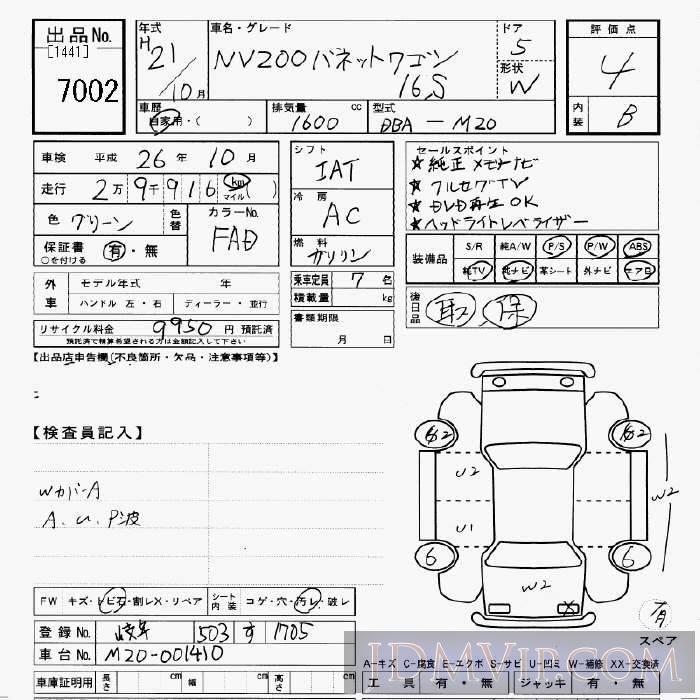 出品No.
[1441]
7002
年式
H 21/10月
車名・グレード
NV200バネットワゴン
16S
ドア
5
形状
W
評価点
4
内装
B
車歴
自家用・( )
排気量 cc
1600
型式
DBA-M20
車検 平成 26年 10月
走行 2万9千916 km マイル( )
色 グリーン
色替
カラーNo.
FAD
保証書 有・無
○を付ける
シフト
IAT
冷房
AC
燃料
ガソリン
乗車定員 7名
積載量 kg
書類期限
月 日
セールスポイント
★純正メモリナビ
★フルセグTV
★DVD再生OK
★ヘッドライトレベライザー
装備品 S/R 純A/W P/S P/W ABS
純TV 純ナビ 革シート 外ナビ エアB
後日品 取 保
外車 モデル年式 年
ハンドル 左・右 ディーラー・並行
リサイクル料金 9950 円 預託済
預託済で精算希望される方は金額記入して下さい
【出品店申告欄(不良箇所・欠品・注意事項等)】
【検査員記入】
Wカバ-A
A、U、P波
62 62
U2
U1
W2
6 6
W2
X
有
スペア
FW キズ・トビ石・割レX・リペア シート内装 コゲ・穴・汚レ・破レ
登録No. 岐阜 503 す 1705
車台No. M20-001410
車庫証明用 長さ cm 幅 cm 高さ cm
A-キズ C-腐食 E-エクボ S-サビ U-凹ミ W-補修 XX-交換済
工具 有・無 ジャッキ 有・無
IDMVIP.COM